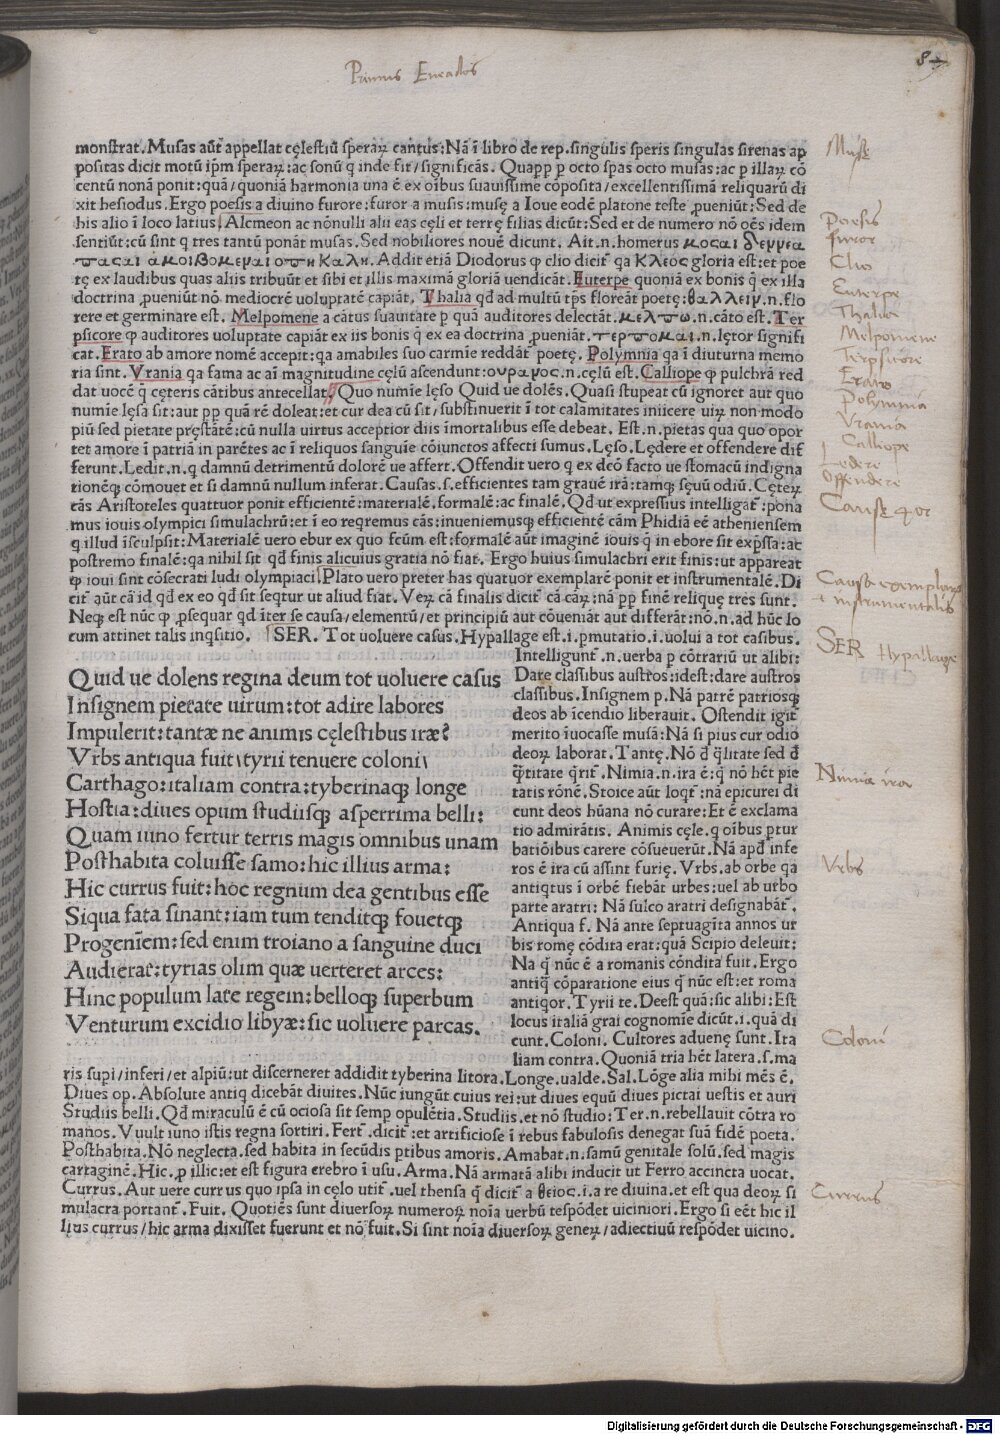 Primus Eneados
monstrat. Musas aūt appellat cęlestiū speraꝝ cantus: Nā ī libro de rep. singulis speris singulas sirenas ap
positas dicit motū ip̄m speraꝝ: ac sonū q inde fit/significās. Quapp p octo spas octo musas: ac p illaꝝ cō
centū nonā ponit: quā/quoniā harmonia una ē ex oībus suauissime cōposita/excellentissimā reliquarū di
xit hesiodus. Ergo poesis a diuino furore: furor a musis: musę a Ioue eodē platone teste ꝓueniūt: Sed de
his alio ī loco latius. Alcmeon ac nōnulli alii eas cęli et terrę filias dicūt: Sed et de numero nō oēs idem
sentiūt: cū sint q tres tantū ponāt musas. Sed nobiliores nouē dicunt. Ait .n. homerus μοσαι δεννεα
πασαι αμοιβομεναι οπη καλη. Addit etiā Diodorus ꝙ clio dicit̄ qa κλεος gloria est: et poe
tę ex laudibus quas aliis tribuūt et sibi et illis maximā gloriā uendicāt. Euterpe quoniā ex bonis q̄ ex illa
doctrina ꝓueniūt nō mediocrē uoluptatē capiāt. Thalia qd̄ ad multū tp̄s floreāt poetę: θαλλειν .n. flo
rere et germinare est. Melpomene a cātus suauitate p quā auditores delectāt. μελπω .n. cāto est. Ter
psicore ꝙ auditores uoluptate capiāt ex iis bonis q̄ ex ea doctrina ꝓueniāt. τερπομαι .n. lętor signifi
cat. Erato ab amore nomē accepit: qa amabiles suo carmīe reddāt poetę. Polymnia qa ī diuturna memo
ria sint. Vrania qa fama ac aī magnitudine cęlū ascendunt: ουρανος .n. cęlū est. Calliope ꝙ pulchrā red
dat uocē q̄ cęteris cātibus antecellat. Quo numīe lęso Quid ue dolēs. Quasi stupeat cū ignoret aut quo
numīe lęsa sit: aut pp quā rē doleat: et cur dea cū sit/substinuerit ī tot calamitates iniicere uiꝝ non modo
piū sed pietate pręstātē: cū nulla virtus acceptior diis īmortalibus esse debeat. Est .n. pietas qua quo opor
tet amore ī patriā in parētes ac ī reliquos sanguīe cōiunctos affecti sumus. Lęso. Lędere et offendere dif
ferunt. Ledit .n. q damnū detrimentū dolorē ue affert. Offendit uero q ex dcō facto ue stomacū indigna
tionēqꝫ cōmouet et si damnū nullum inferat. Causas .s. efficientes tam grauē irā: tamqꝫ sęuū odiū. Cęteꝝ
cās Aristoteles quattuor ponit efficientē: materialē. formalē: ac finalē. Qd̄ ut expressius intelligat̄: pona
mus iouis olympici simulachrū: et ī eo reqremus cās: inueniemusqꝫ efficientē cām Phidiā eē atheniensem
q illud īsculpsit: Materialē uero ebur ex quo fcūm est: formalē aūt imaginē iouis q̄ in ebore sit exp̄ssa: ac
postremo finalē: qa nihil sit qd̄ finis alicuius gratia nō fiat. Ergo huius simulachri erit finis: ut appareat
ꝙ ioui sint cōsecrati ludi olympiaci. Plato uero preter has quatuor exemplarē ponit et instrumentalē. Di
cit̄ aūt cā id qd̄ ex eo qd̄ sit seqtur ut aliud fiat. Veꝝ cā finalis dicit̄ cā cāꝝ: nā pp finē reliquę tres sunt.
Neqꝫ est nūc ꝙ ꝓsequar qd īter se causa/elementū/et principiū aut cōueniāt aut differāt: nō .n. ad hūc lo
cum attinet talis inqsitio. SER. Tot uoluere casus. Hypallage est .i. pmutatio .i. uolui a tot casibus.
Intelligunt̄ .n. uerba p cōtrariū ut alibi:
Dare classibus austros: idest: dare austros
classibus. Insignem p. Nā patrē patriosqꝫ
deos ab īcendio liberauit. Ostendit igit̄
merito īuocasse musā: Nā si pius cur odio
deoꝝ laborat. Tantę. Nō d̄ q̄litate sed d̄
q̄titate q̄rit̄. Nimia .n. ira ē: q̄ nō hēt pie
tatis rōnē. Stoice aūt loqt̄: nā epicurei di
cunt deos hūana nō curare: Et ē exclama
tio admirātis. Animis cęle. q oībus ptur
batiōibus carere cōsueuerūt. Nā apd̄ infe
ros ē ira cū assint furię. Vrbs. ab orbe qa
antiqtus ī orbē fiebāt urbes: uel ab urbo
parte aratri: Nā sulco aratri designabāt̄.
Antiqua f. Nā ante septuagīta annos ur
bis romę cōdita erat: quā Scipio deleuit:
Na q̄ nūc ē a romanis cōndita fuit. Ergo
antiq̄ cōparatione eius q̄ nūc est: et roma
antiqor. Tyrii te. Deest quā: sic alibi: Est
locus italiā grai cognomīe dicūt .i. quā di
cunt. Coloni. Cultores aduenę sunt. Ita
liam contra. Quoniā tria hēt latera .s. ma
Quid ue dolens regina deum tot uoluere casus
Insignem pietate uirum: tot adire labores
Impulerit: tantæ ne animis cęlestibus iræ?
Vrbs antiqua fuit\tyrii tenuere coloni\
Carthago: italiam contra: tyberinaqꝫ longe
Hostia: diues opum studiisqꝫ asperrima belli:
Quam iuno fertur terris magis omnibus unam
Posthabita coluisse samo: hic illius arma:
Hic currus fuit: hoc regnum dea gentibus esse
Siqua fata sinant: iam tum tenditqꝫ fouetqꝫ
Progeniem: sed enim troiano a sanguine duci
Audierat: tyrias olim quæ uerteret arces:
Hinc populum late regem: belloqꝫ superbum
Venturum excidio libyæ: sic uoluere parcas.
ris supi/inferi/et alpiū: ut discerneret addidit tyberina litora. Longe. ualde. Sal. Lōge alia mihi mēs ē.
Diues op. Absolute antiq dicebāt diuites. Nūc iungūt cuius rei: ut diues equū diues pictai uestis et auri
Studiis belli. Qd̄ miraculū ē cū ociosa sit semp opulētia. Studiis. et nō studio: Ter .n. rebellauit cōtra ro
manos. Vuult iuno istis regna sortiri. Fert̄. dicit̄: et artificiose ī rebus fabulosis denegat suā fidē poeta.
Posthabita. Nō neglecta. sed habita in secūdis ptibus amoris. Amabat .n. samū genitale solū. sed magis
cartaginē. Hic. ꝓ illic: et est figura crebro ī usu. Arma. Nā armatā alibi inducit ut Ferro accincta uocat.
Currus. Aut uere currus quo ipsa in cęlo utit̄. uel thensa q̄ dicit̄ a θειος .i. a re diuina. et est qua deoꝝ si
mulacra portant̄. Fuit. Quotiēs sunt diuersoꝝ numeroꝝ noīa uerbū respōdet uiciniori. Ergo si eēt hic il
lius currus/hic arma dixisset fuerunt et nō fuit. Si sint noīa diuersoꝝ geneꝝ/adiectiuū respōdet uicino.
Musę
Poesis
furor
Clio
Euterpe
Thalia
Melpomene
Terpsicore
Erato
Polymnia
Vrania
Calliope
Ledere
Offendere
Causę 4or
Causa exemplaris
et instrumentalis
SER Hypallage
Nimia ira
Vrbs
Coloni
Currus
Digitalisierung gefördert durch die Deutsche Forschungsgemeinschaft - DFG